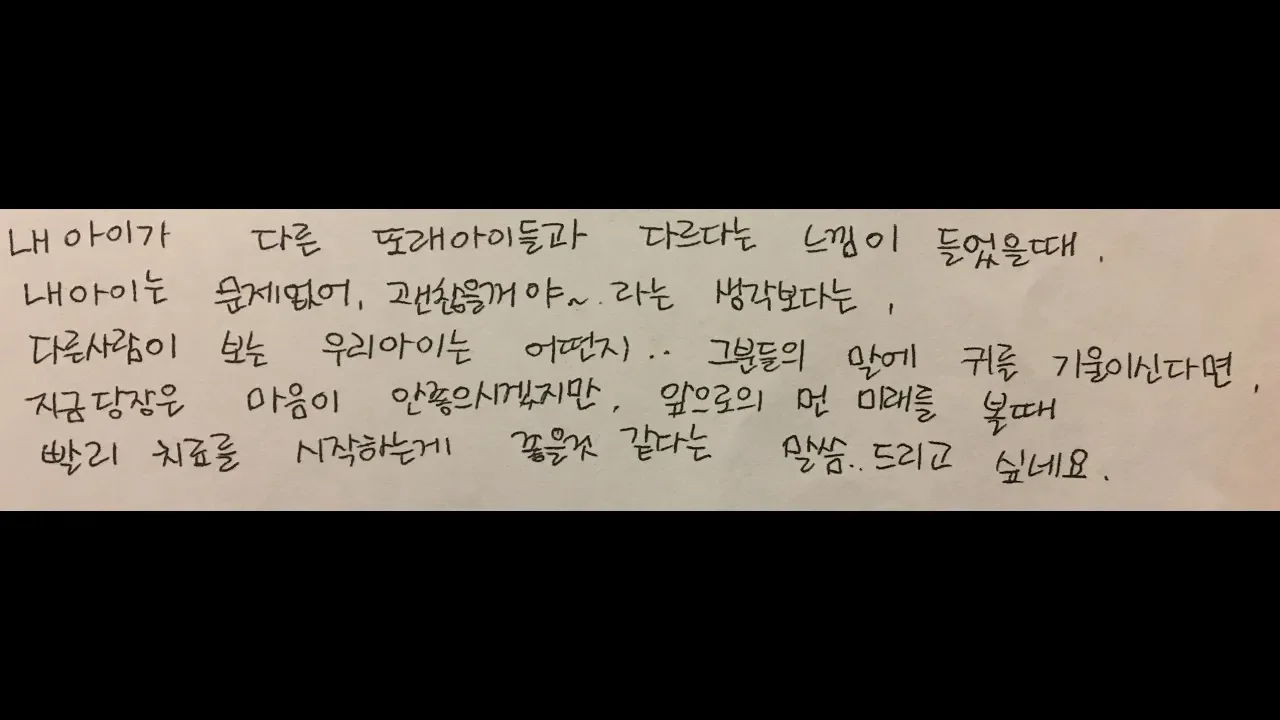 내 아이가 다른 또래아이들과 다르다는 느낌이 들었을때,
내아이는 문제없어, 괜찮을꺼야~ 라는 생각보다는,
다른사람이 보는 우리아이는 어떤지.. 그분들의 말에 귀를 기울이신다면,
지금당장은 마음이 안좋으시겠지만, 앞으로의 먼 미래를 볼때
빨리 치료를 시작하는게 좋을것 같다는 말씀..드리고 싶네요.